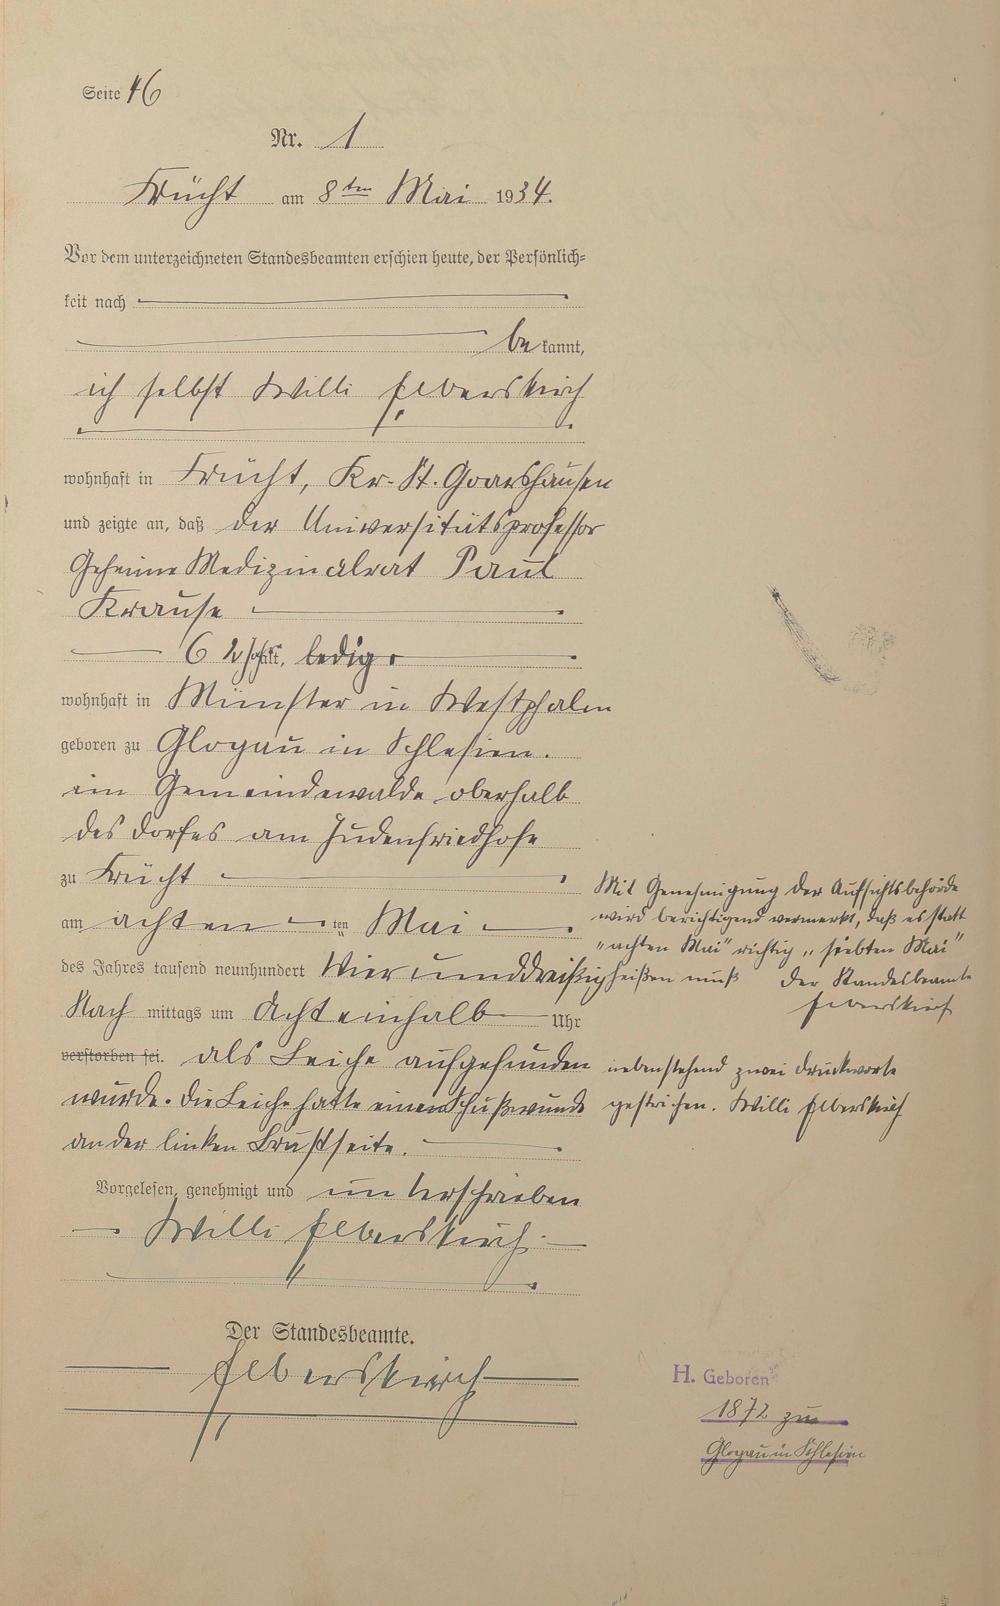 Seite 46
Nr. 1
Frücht am 8ten Mai 1934.
Vor dem unterzeichneten Standesbeamten erschien heute, der Persönlich-
keit nach
be kannt,
ich selbst Willi Elberskirch
wohnhaft in Frücht, Kr. St. Goarshausen
und zeigte an, daß der Universitätsprofessor
Geheime Medizinalrat Paul
Krause
62 Jahr alt, ledig.
wohnhaft in Münster in Westphalen
geboren zu Glogau in Schlesien.
im Gemeindewalde oberhalb
des Dorfes am Judenfriedhofe
zu Frücht
am achten ten Mai
des Jahres tausend neunhundert Vierunddreißig
Nach mittags um Achteinhalb Uhr
verstorben sei. als Leiche aufgefunden
wurde. Die Leiche hatte einen Schußwunde
an der linken Brustseite.
Vorgelesen, genehmigt und unterschrieben
Willi Elberskirch
Der Standesbeamte.
Elberskirch
Mit Genehmigung der Aufsichtsbehörde
wird berichtigend vermerkt, daß es statt
„achten Mai" richtig „siebten Mai"
heißen muß der Standesbeamte
Elberskirch
nebenstehend zwei Druckworte
gestrichen. Willi Elberskirch
H. Geboren
1872 zu
Glogau in Schlesien